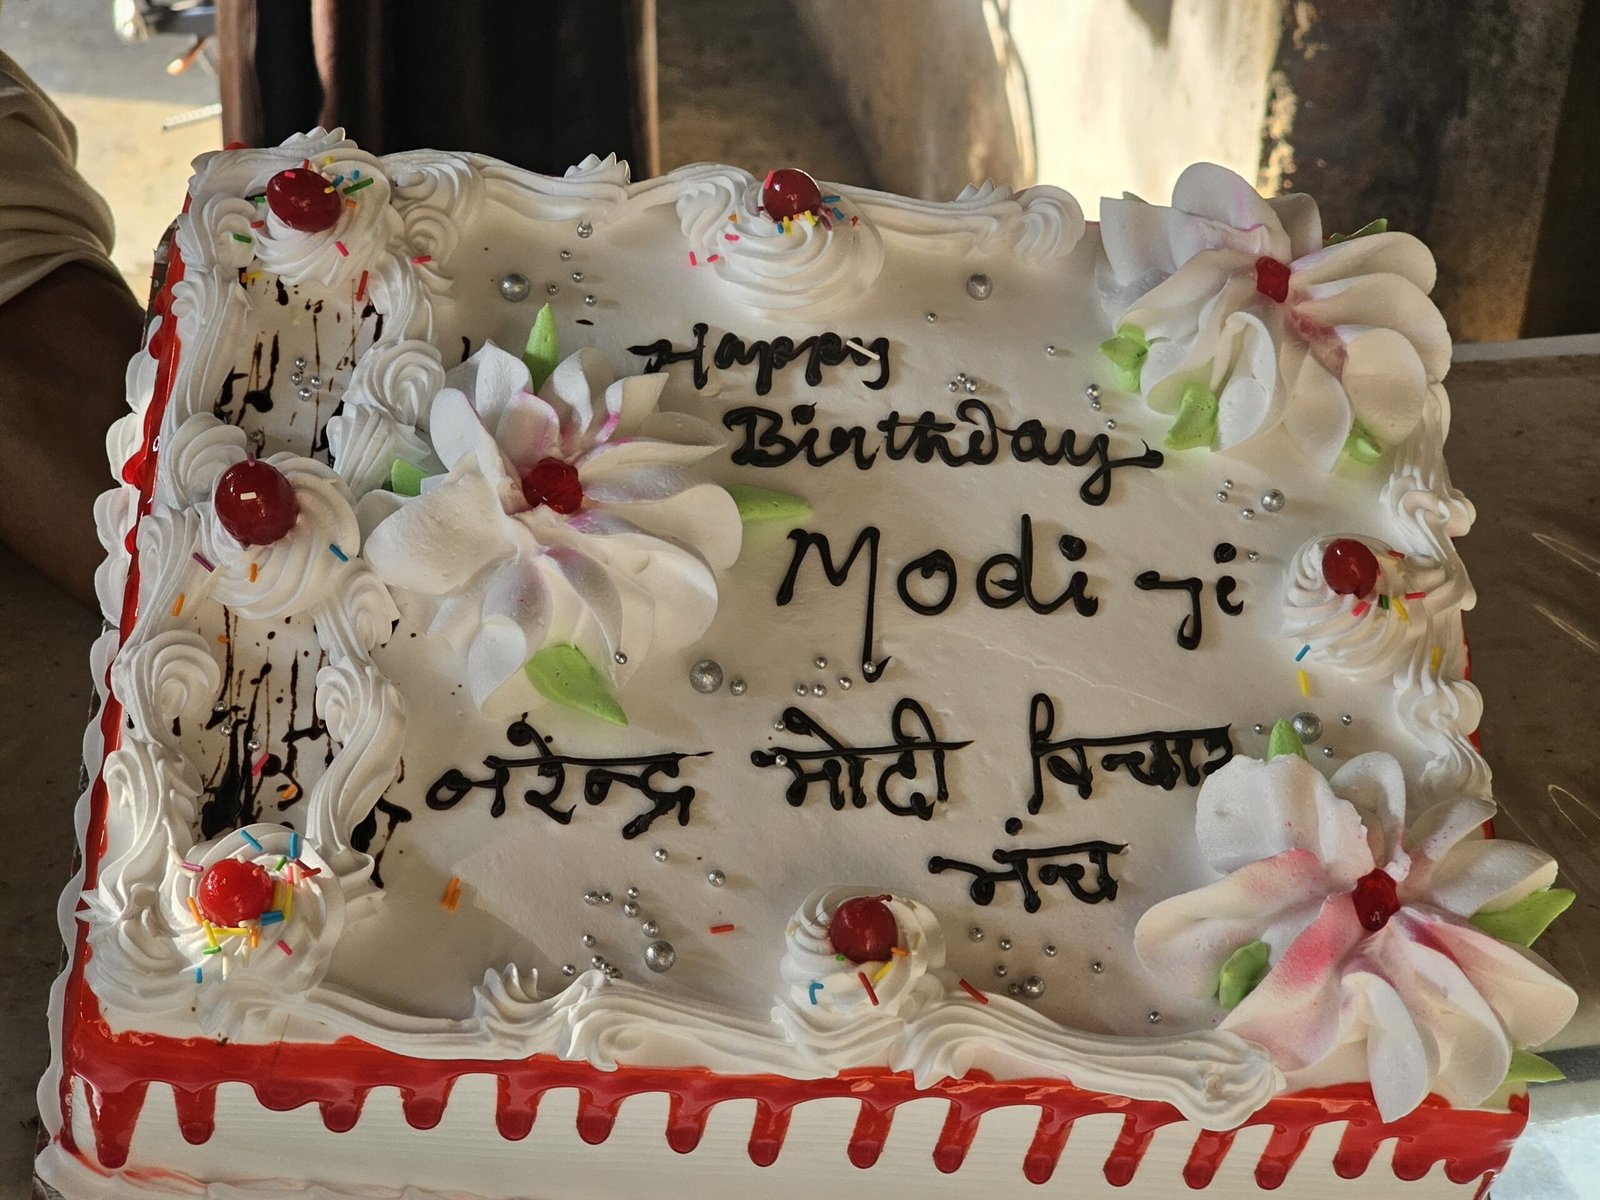 Happy
Birthday
Modi ji
नरेन्द्र मोदी विचार
मंच